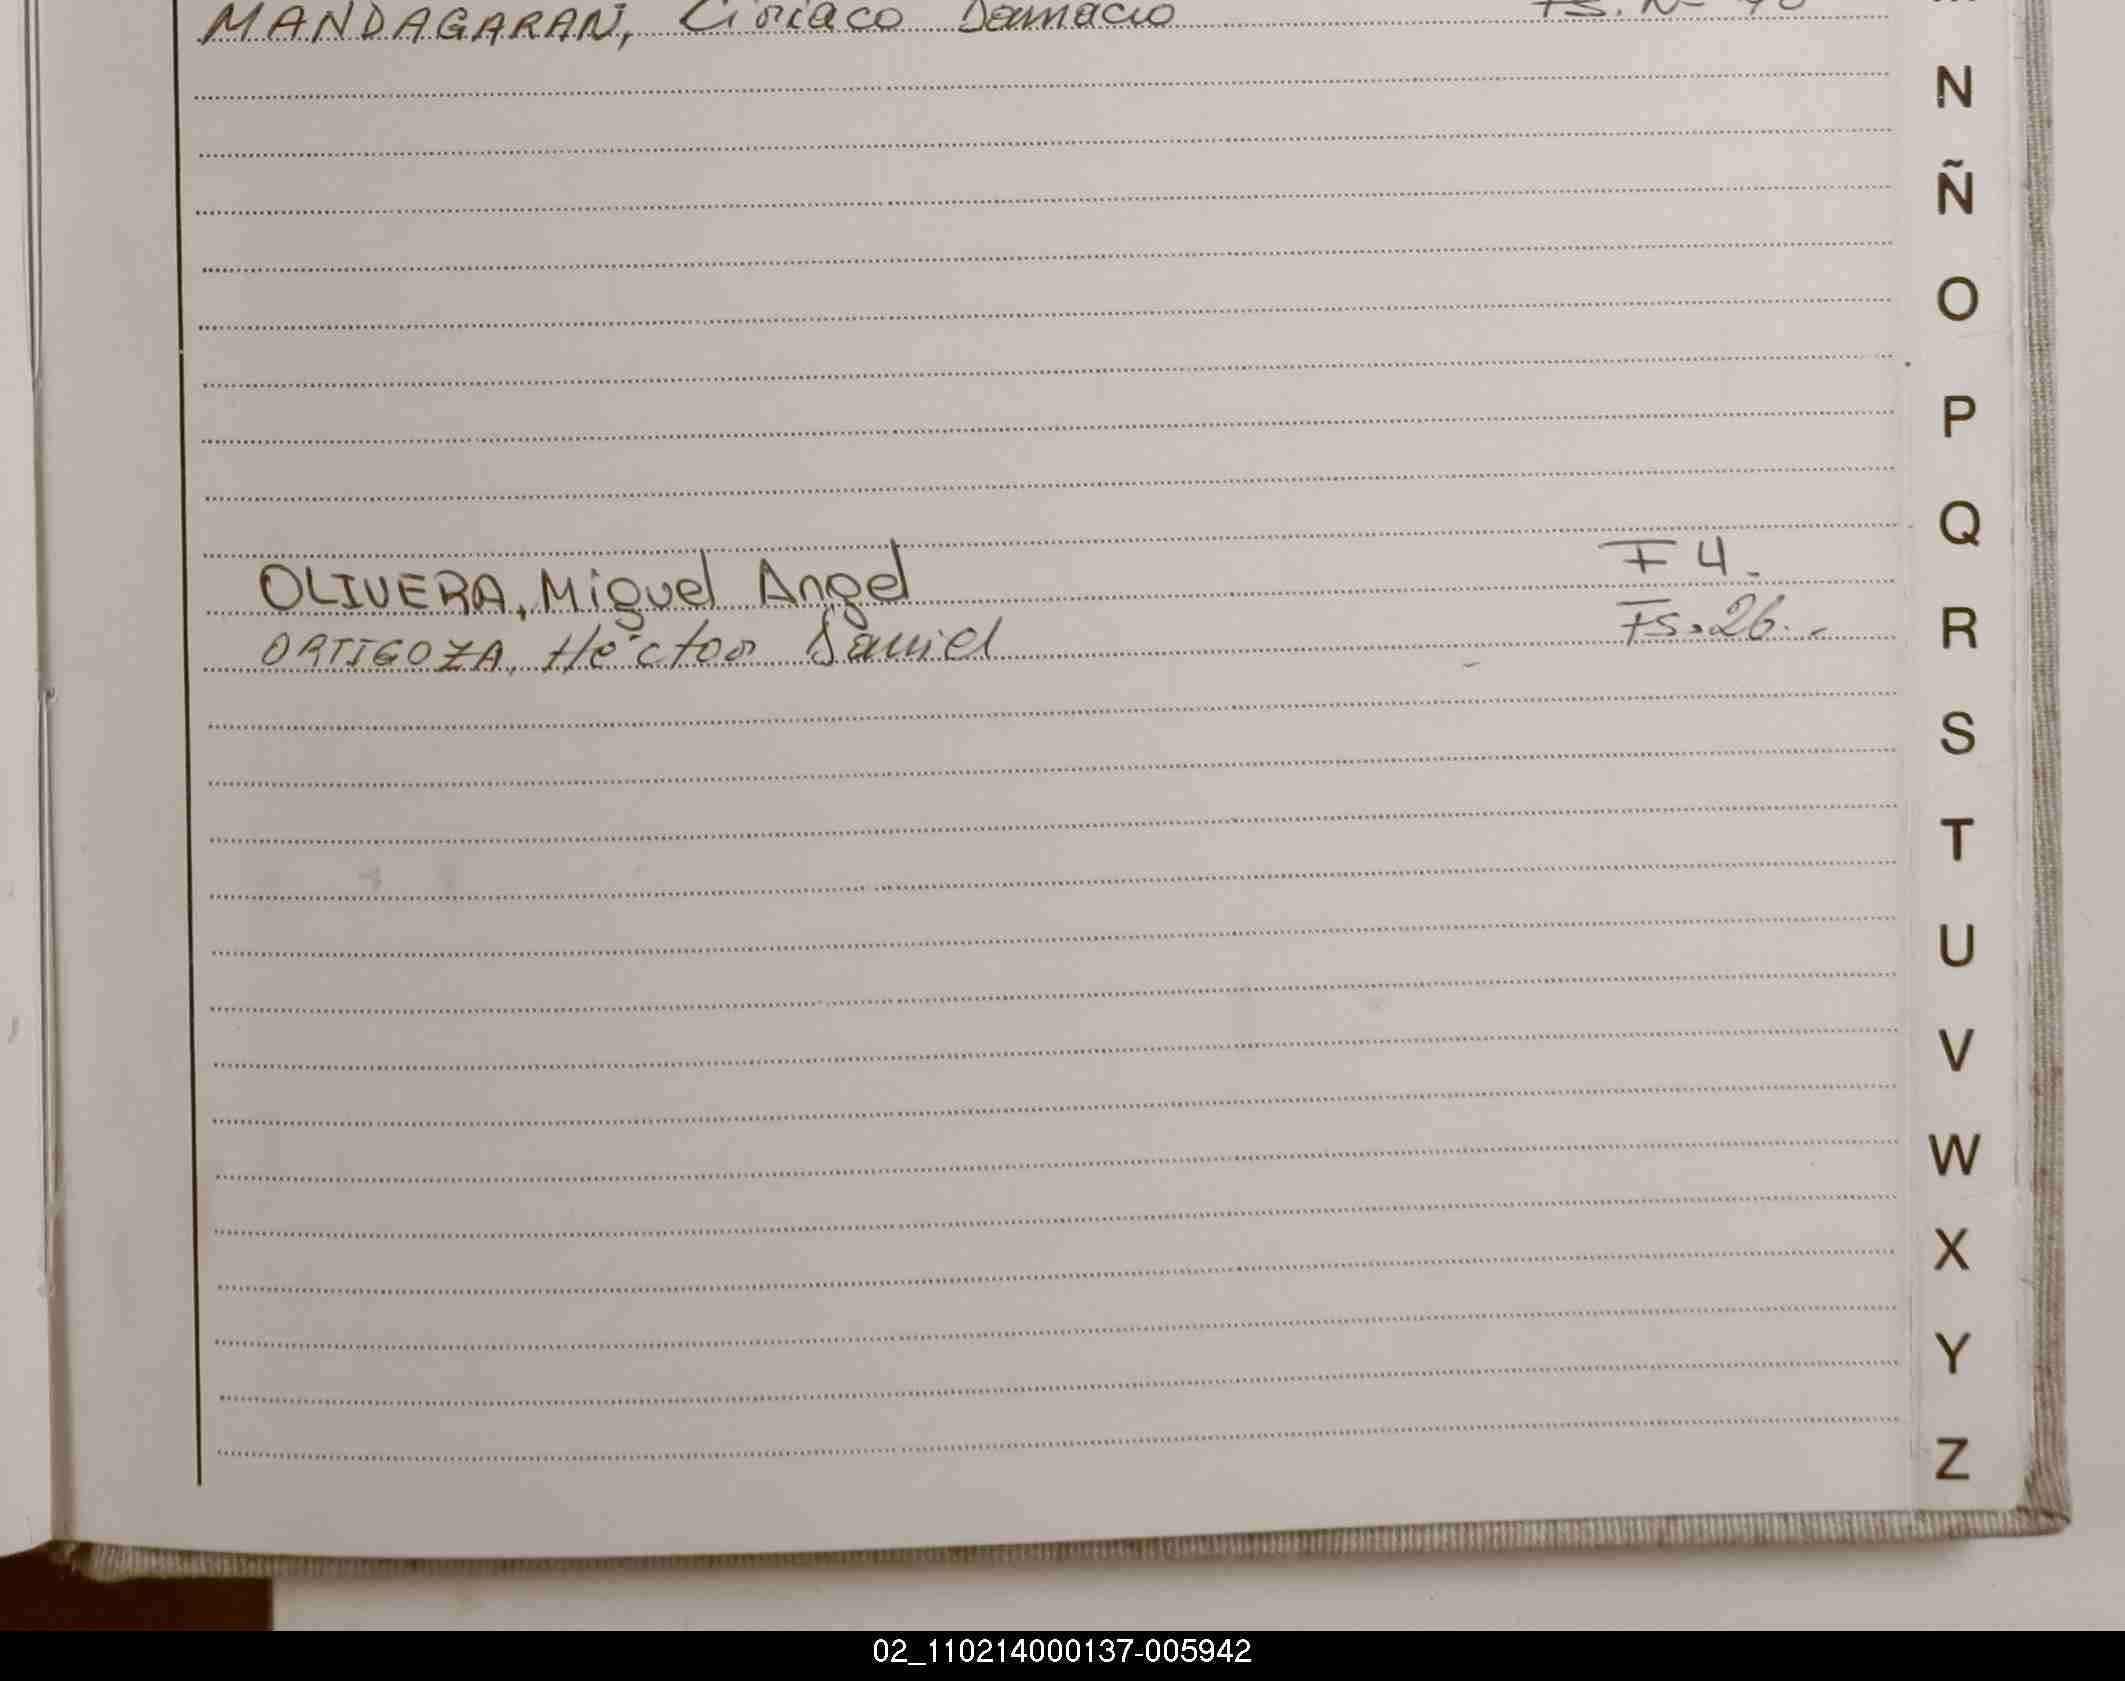 MANDAGARAN, Ciriaco Damacio Fs. Nº
N
Ñ
O
P
Q
OLIVERA, Miguel Angel F 4.
ORTIGOZA, Héctor Daniel Fs. 26.-
R
S
T
U
V
W
X
Y
Z
02_110214000137-005942